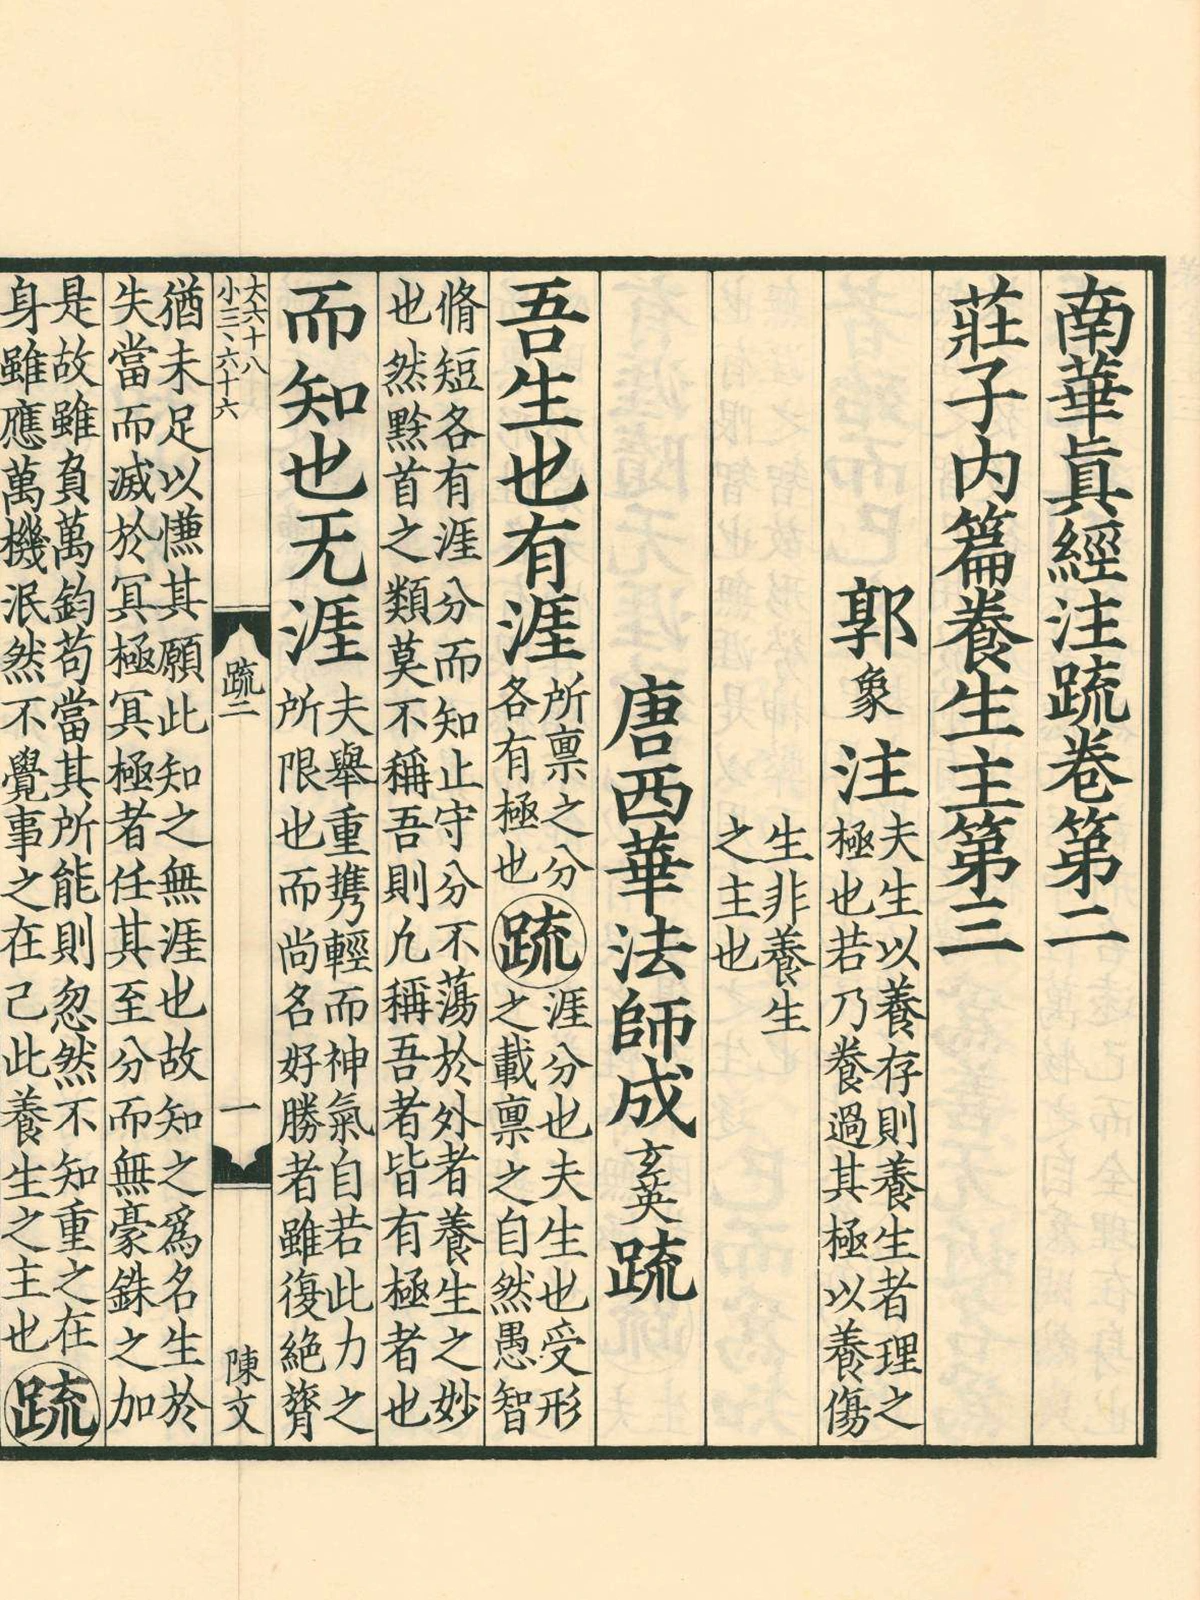 南華眞經注疏卷第二
莊子内篇養生主第三
郭象注
夫生以養存則養生者理之
極也若乃養過其極以養傷
生非養生
之主也
唐西華法師成玄英疏
吾生也有涯
所禀之分
各有極也
疏
涯分也夫生也受形
之載禀之自然愚智
脩短各有涯分而知止守分不蕩於外者養生之妙
也然黔首之類莫不稱吾則凢稱吾者皆有極者也
而知也无涯
夫舉重携輕而神氣自若此力之
所限也而尚名好勝者雖復絶膂
大六十八
小三、六十六
疏二
一
陳文
猶未足以慊其願此知之無涯也故知之爲名生於
失當而滅於冥極冥極者任其至分而無豪銖之加
是故雖負萬鈞苟當其所能則忽然不知重之在
身雖應萬機泯然不覺事之在己此養生之主也
疏